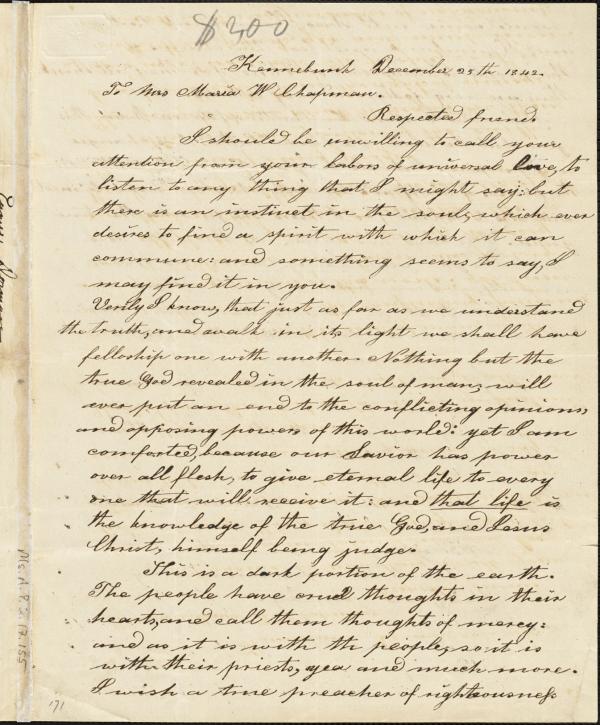 $200
Kennebunk December 25th 1842.
To Mrs Maria W Chapman.
Respected friend.
I should be unwilling to call your
attention from your labors of universal love, to
listen to any thing that I might say: but
there is an instinct in the soul, which ever
desires to find a spirit with which it can
commune: and something seems to say, I
may find it in you.
Verily I know, that just as far as we understand
the truth, and walk in its light we shall have
felloship one with another. Nothing but the
true God revealed in the soul of man, will
ever put an end to the conflicting opinions,
and opposing powers of this world: yet I am
comforted, because our Savior has power
over all flesh, to give eternal life to every
one that will receive it: and that life is
the knowledge of the true God, and Jesus
Christ, himself being judge.
This is a dark portion of the earth.
The people have cruel thoughts in their
hearts, and call them thoughts of mercy:
and as it is with th people, so it is
with their priests, yea and much more.
I wish a true preacher of righteousness
171
Ms. A. 9. 2. 17. 155